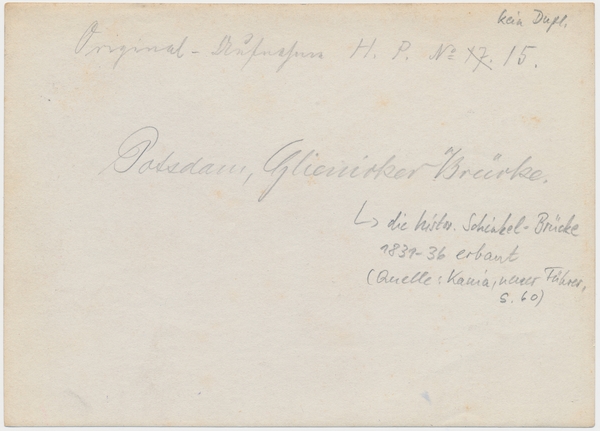 kein Dupl.
Original-Aufnahme H. P. No 17. 15.
Potsdam, Glienicker Brücke.
↳ die histor. Schinkel-Brücke
1831-36 erbaut
(Quelle: Kania, neuer Führer,
S. 60)